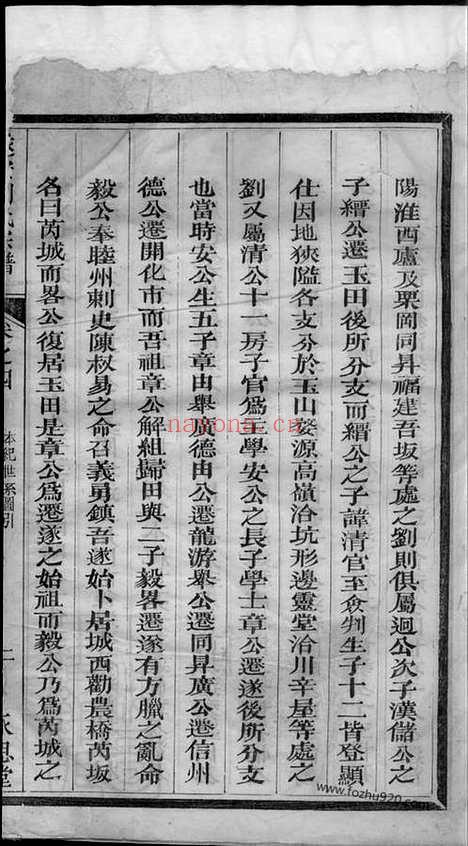 陽淮西廬及栗岡同昇福建吾坂等處之劉則俱屬迴公次子漢儲公之
子縉公遷玉田後所分支而縉公之子諱清官至僉判生子十二皆登顯
仕因地狹隘各支分於玉山婺源高嶺冶坑形邊靈堂冶川辛屋等處之
劉又屬清公十一房子官爲王學安公之長子學士章公遷遂後所分支
也當時安公生五子章由舉廣德由公遷龍游舉公遷同昇廣公遷信州
德公遷開化市而吾祖章公解組歸田與二子毅畧遷遂有方臘之亂命
毅公奉睦州刺史陳叔易之命召義勇鎮吾遂始卜居城西勸農橋芮坂
名曰芮城而畧公復居玉田是章公爲遷遂之始祖而毅公乃爲芮城之
卷之四
本紀世系圖引
二
永思堂
nayona.cn
www.fozhu920.com